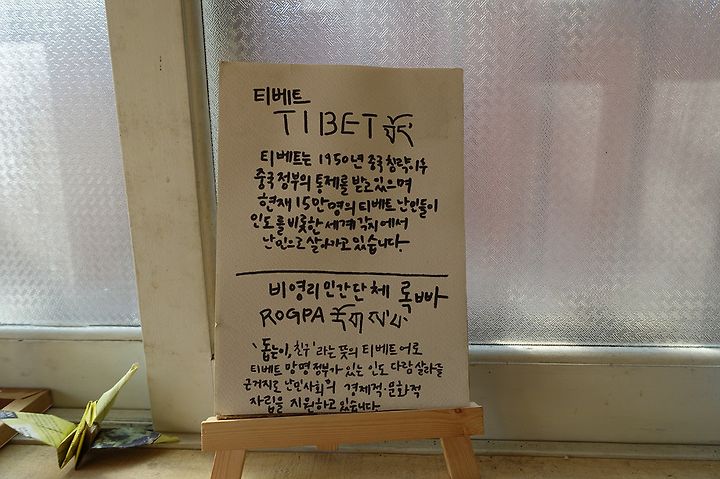 티베트
TIBET བོད་
티베트는 1950년 중국 침략이후
중국정부의 통제를 받고있으며
현재 15만명의 티베트 난민들이
인도를 비롯한 세계각지에서
난민으로 살아가고 있습니다.
비영리민간단체 록빠
ROGPA རོགས་པ་
'돕는이, 친구'라는 뜻의 티베트어로
티베트 망명정부가 있는 인도 다람살라를
근거지로 난민사회의 경제적·문화적
자립을 지원하고 있습니다.